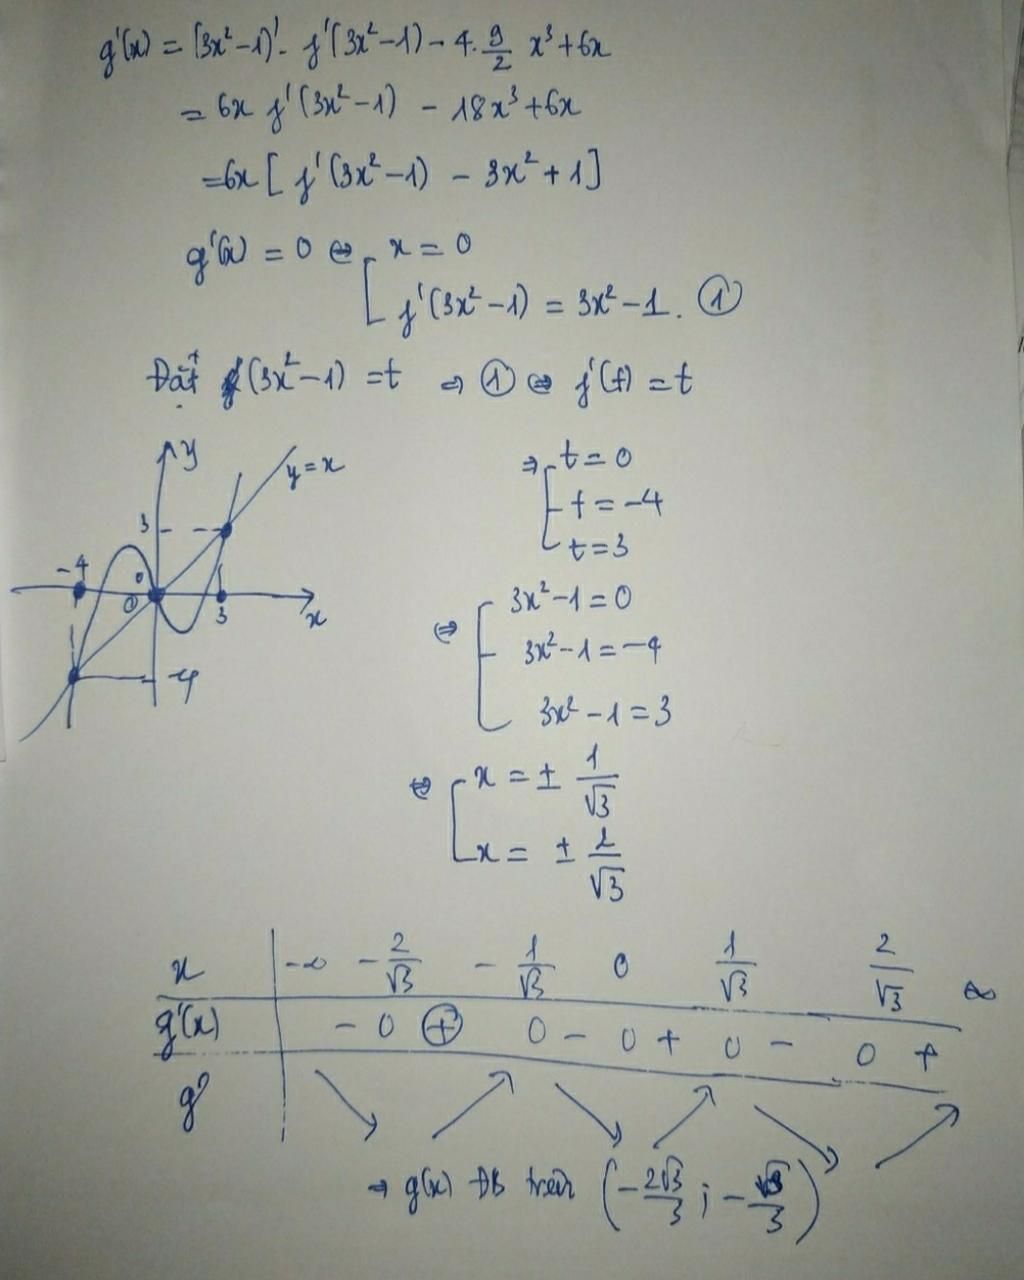 g'(x) = (3x²-1)'. f'(3x²-1) - 4. 9/2 x³ + 6x
= 6x f'(3x²-1) - 18x³ + 6x
= 6x [ f'(3x²-1) - 3x² + 1 ]
g'(x) = 0 ⇔ [ x = 0
f'(3x²-1) = 3x² - 1. ①
Đặt (3x²-1) = t ⇒ ① ⇔ f'(t) = t
y
y = x
3
-4
0
0
3
x
-4
⇒ [ t = 0
t = -4
t = 3
⇔ [ 3x² - 1 = 0
3x² - 1 = -4
3x² - 1 = 3
⇔ [ x = ± 1/√3
x = ± 2/√3
x -∞ -2/√3 -1/√3 0 1/√3 2/√3 ∞
g'(x) - 0 ⊕ 0 - 0 + 0 - 0 +
g
⇒ g(x) ĐB trên (-2√3/3 ; -√3/3)